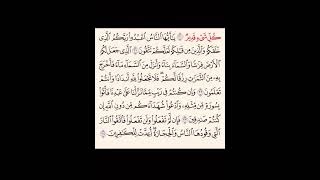 كُلِّ شَىْءٍ قَدِيرٌ ۝ يَـٰٓأَيُّهَا ٱلنَّاسُ ٱعْبُدُوا۟ رَبَّكُمُ ٱلَّذِى
خَلَقَكُمْ وَٱلَّذِينَ مِن قَبْلِكُمْ لَعَلَّكُمْ تَتَّقُونَ ۝ ٱلَّذِى جَعَلَ لَكُمُ
ٱلْأَرْضَ فِرَٰشًا وَٱلسَّمَآءَ بِنَآءً وَأَنزَلَ مِنَ ٱلسَّمَآءِ مَآءً فَأَخْرَجَ بِهِۦ
مِنَ ٱلثَّمَرَٰتِ رِزْقًا لَّكُمْ ۖ فَلَا تَجْعَلُوا۟ لِلَّهِ أَندَادًا وَأَنتُمْ
تَعْلَمُونَ ۝ وَإِن كُنتُمْ فِى رَيْبٍ مِّمَّا نَزَّلْنَا عَلَىٰ عَبْدِنَا فَأْتُوا۟
بِسُورَةٍ مِّن مِّثْلِهِۦ وَٱدْعُوا۟ شُهَدَآءَكُم مِّن دُونِ ٱللَّهِ إِن
كُنتُمْ صَـٰدِقِينَ ۝ فَإِن لَّمْ تَفْعَلُوا۟ وَلَن تَفْعَلُوا۟ فَٱتَّقُوا۟ ٱلنَّارَ
ٱلَّتِى وَقُودُهَا ٱلنَّاسُ وَٱلْحِجَارَةُ ۖ أُعِدَّتْ لِلْكَـٰفِرِينَ ۝